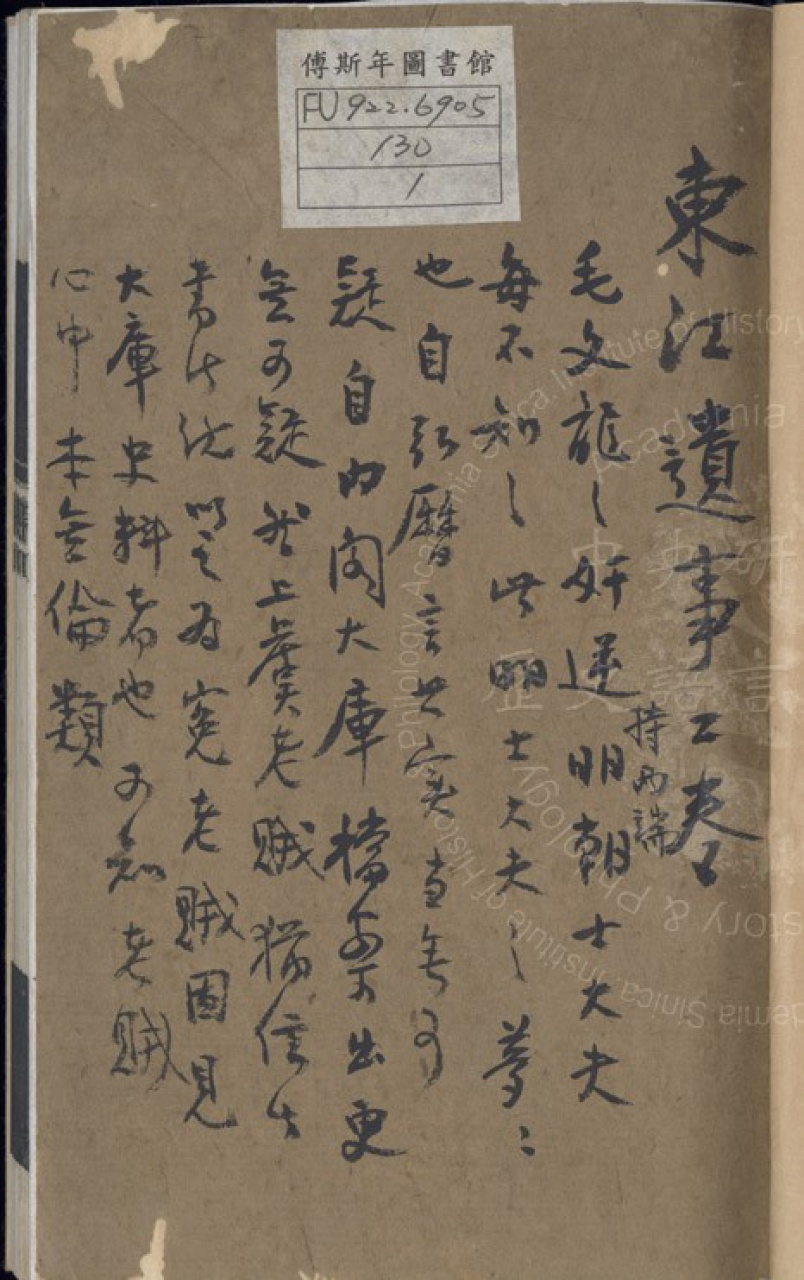 傅斯年圖書館
FU922.6905
130
1
東江遺事二卷
毛文龍之奸逆持兩端明朝士大夫
每不知之此明士大夫之夢々
也自弘曆言其實當無可
疑自內閣大庫檔案出更
無可疑然上虞老賊猶信此
書此說以之為冤老賊固見
大庫史料者也可知老賊
心中本無倫類